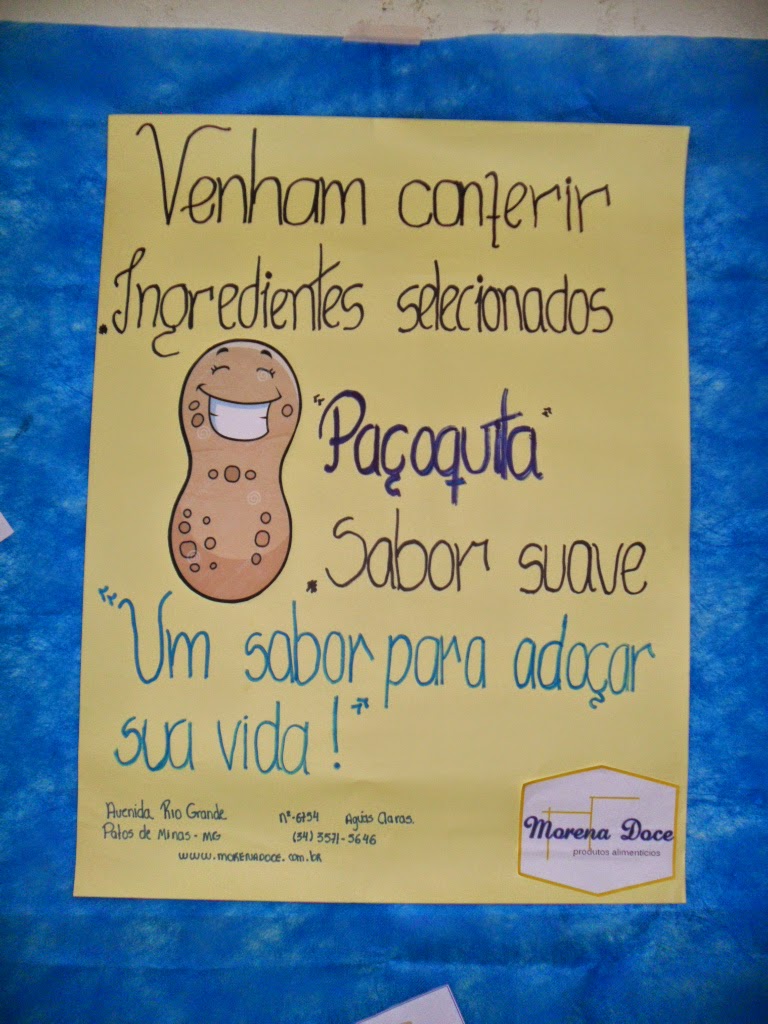 Venham conferir
.Ingredientes selecionados
"Paçoquita"
.Sabor suave
"Um sabor para adoçar
sua vida!"
Avenida Rio Grande nº-6754 Aguas Claras.
Patos de Minas - MG (34) 3571-5646
www.morenadoce.com.br
Morena Doce
produtos alimenticios